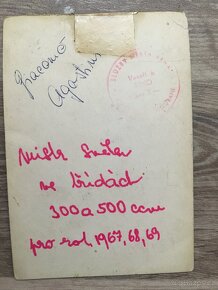 Giacomo
Agostini
Mistr Světa
ve třídách
300 a 500 ccm
pro rok 1967, 68, 69